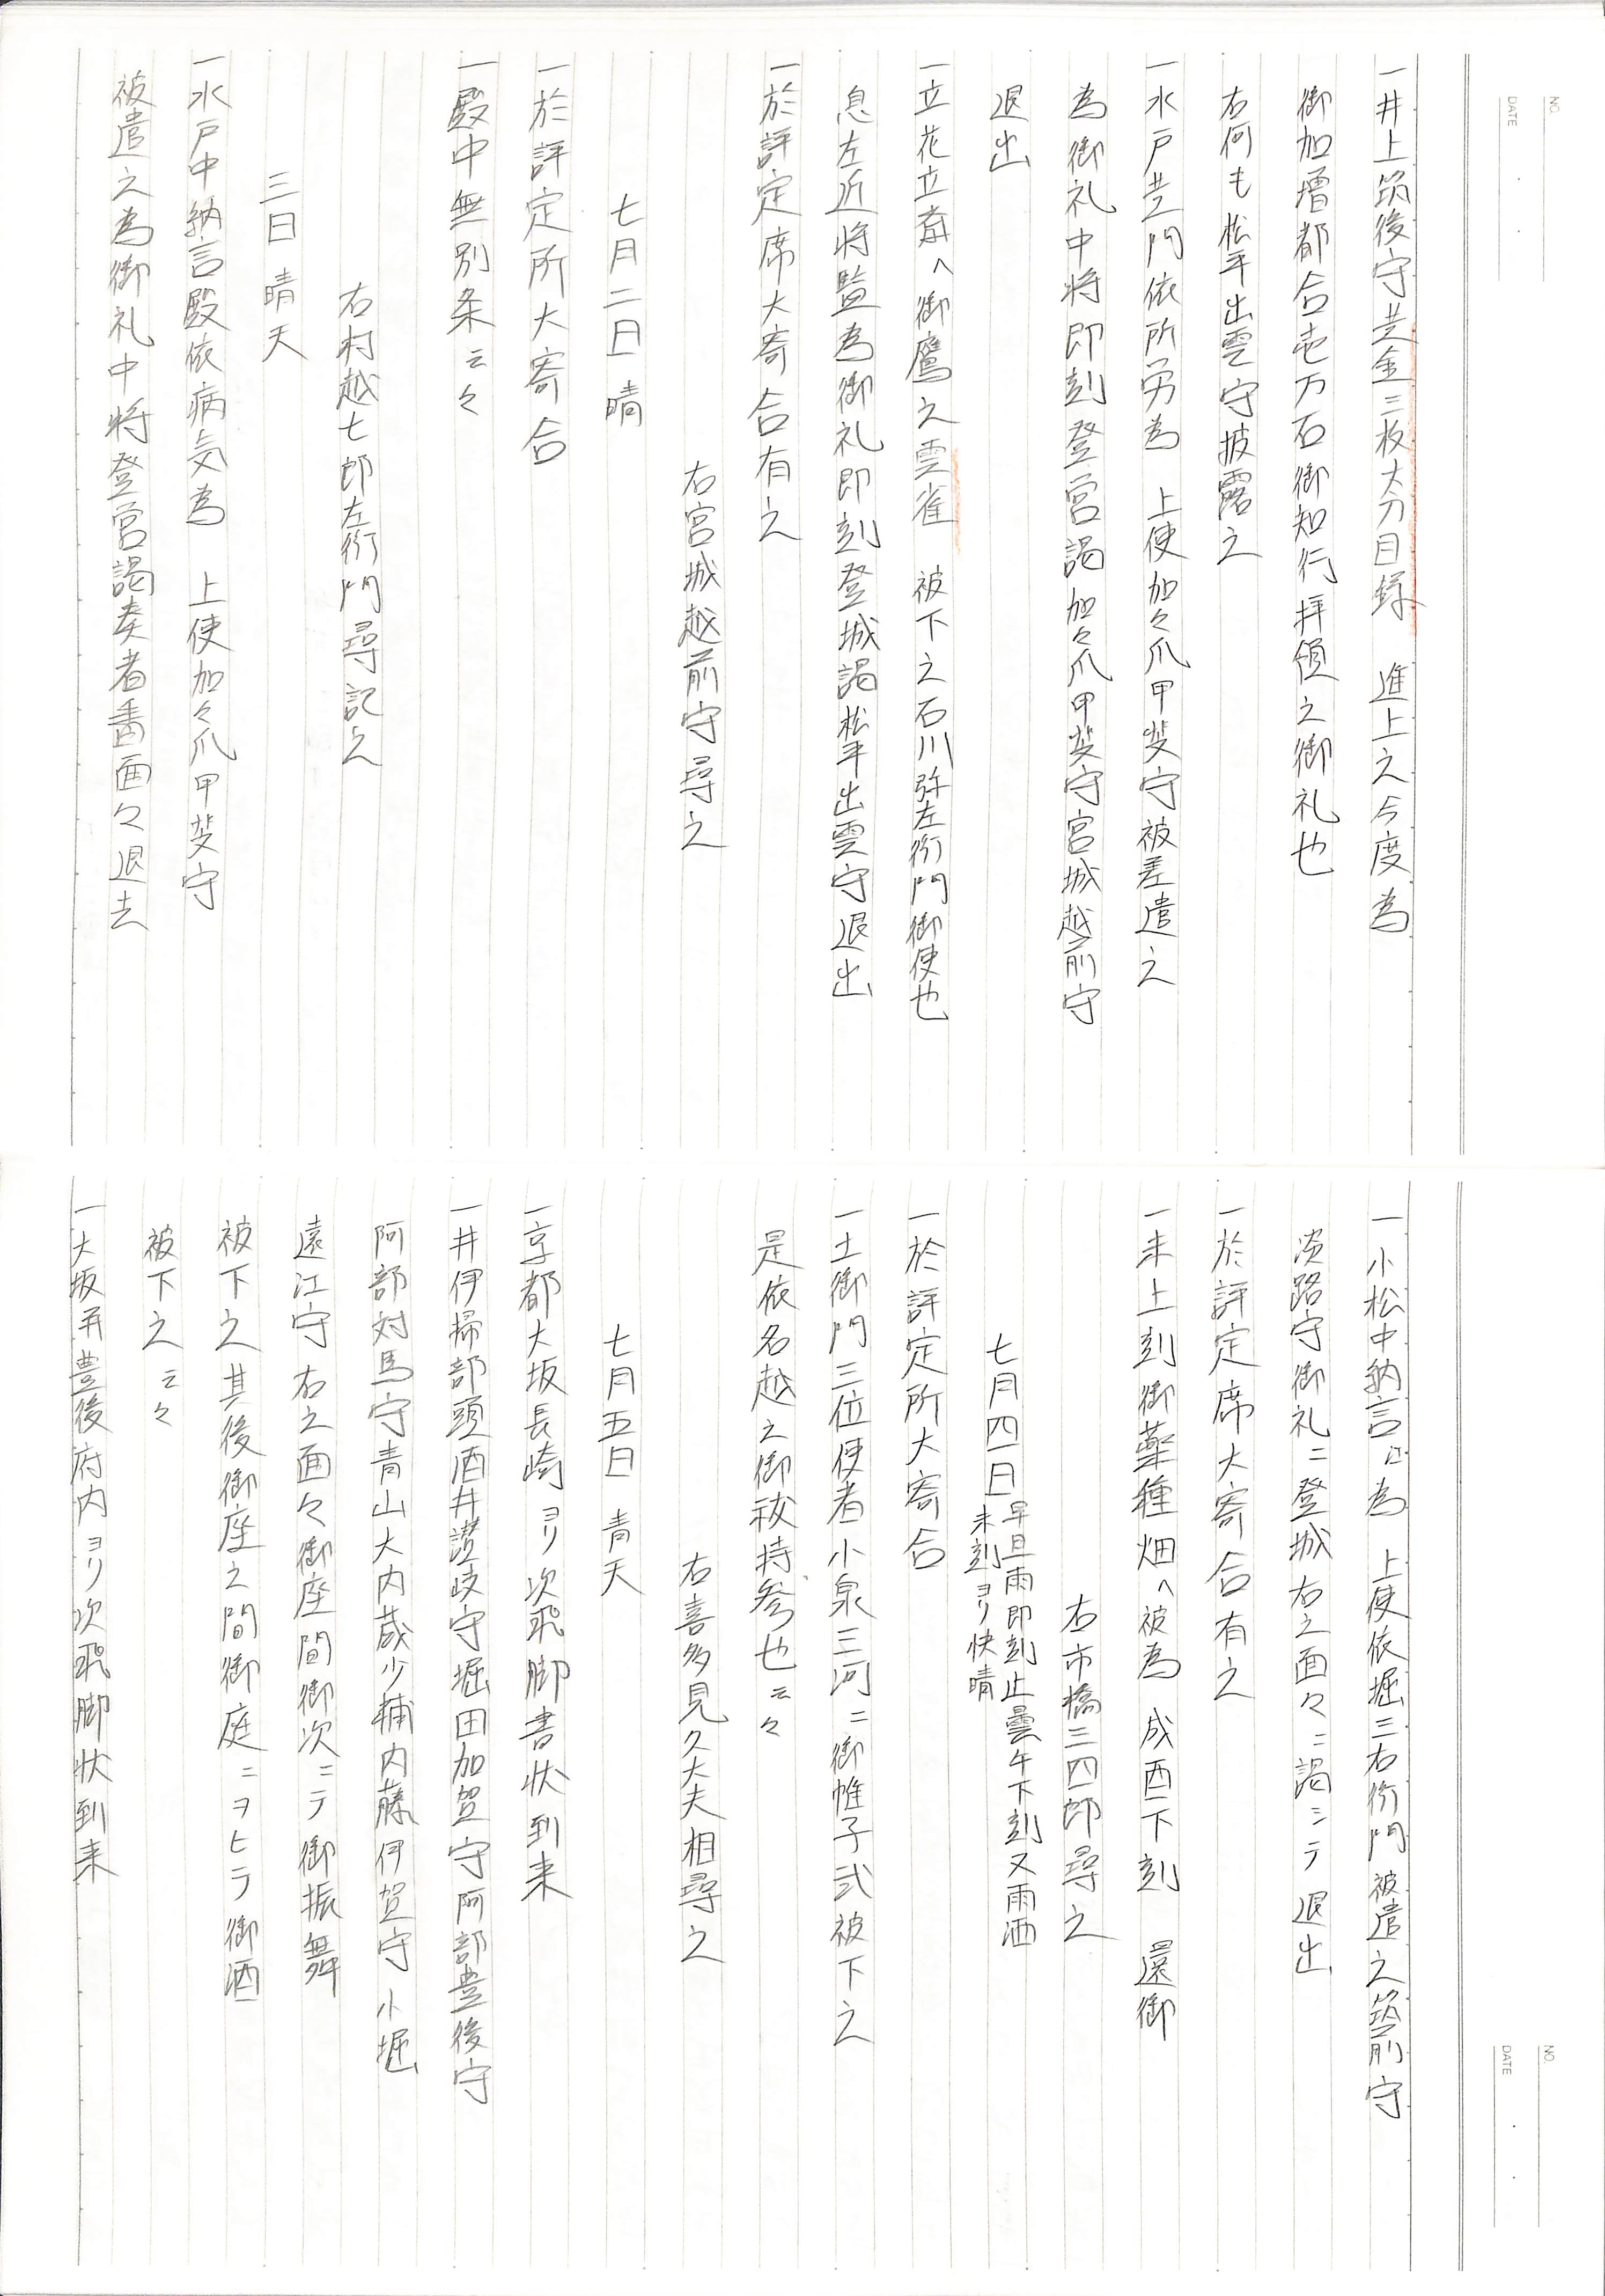 NO.
DATE
一井上筑後守黄金三枚太刀目録　進上之今度為
御加増都合壱万石御知行拝領之御礼也
右何も松平出雲守披露之
一水戸黄門依所労為　上使加々爪甲斐守被差遣之
為御礼中将即刻登営謁加々爪甲斐守宮城越前守
退出
一立花立斎へ御鷹之雲雀　被下之石川弥左衛門御使也
息左近将監為御礼即刻登城謁松平出雲守退出
一於評定席大寄合有之
右宮城越前守尋之
七月二日　晴
一於評定所大寄合
一殿中無別条云々
右村越七郎左衛門尋記之
三日　晴天
一水戸中納言殿依病気為　上使加々爪甲斐守
被遣之為御礼中将登営謁奏者番面々退去
NO.
DATE
一小松中納言江為　上使依堀三右衛門被遣之筑前守
淡路守御礼ニ登城右之面々ニ謁シテ退出
一於評定席大寄合有之
一未上刻御薬種畑へ被為　成酉下刻　還御
右市橋三四郎尋之
七月四日　早旦雨即刻止曇午下刻又雨洒
未刻ヨリ快晴
一於評定所大寄合
一土御門三位使者小泉三河ニ御帷子弐被下之
是依名越之御祓持参也云々
右喜多見久大夫相尋之
七月五日　青天
一京都大坂長崎ヨリ次飛脚書状到来
一井伊掃部頭酒井讃岐守堀田加賀守阿部豊後守
阿部対馬守青山大内蔵少輔内藤伊賀守小堀
遠江守右之面々御座間御次ニテ御振舞
被下之其後御座之間御庭ニヲヒテ御酒
被下之云々
一大坂并豊後府内ヨリ次飛脚状到来